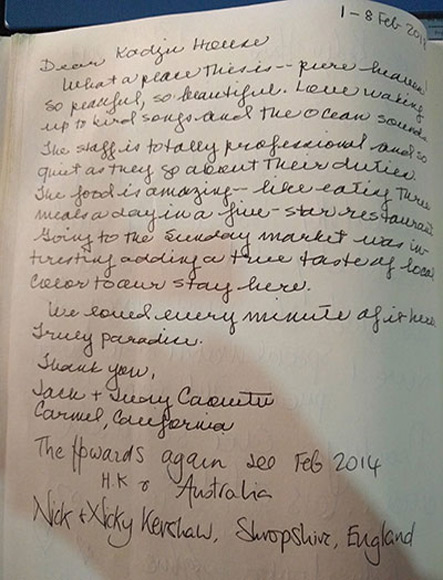 1-8 Feb 201
Dear Kadzu House
What a place this is -- pure heaven
so peaceful, so beautiful. Love waking
up to bird songs and the ocean sounds
The staff is totally professional and so
quiet as they go about their duties.
The food is amazing -- like eating three
meals a day in a five-star restaurant
Going to the Sunday market was in-
tresting adding a true taste of local
color to our stay here.
We loved every minute of it here
Truly paradise.
Thank you,
Jack + Judy
Carmel, California
The Howards again Feb 2014
H.K & Australia
Nick + Nicky Kershaw, Shropshire, England